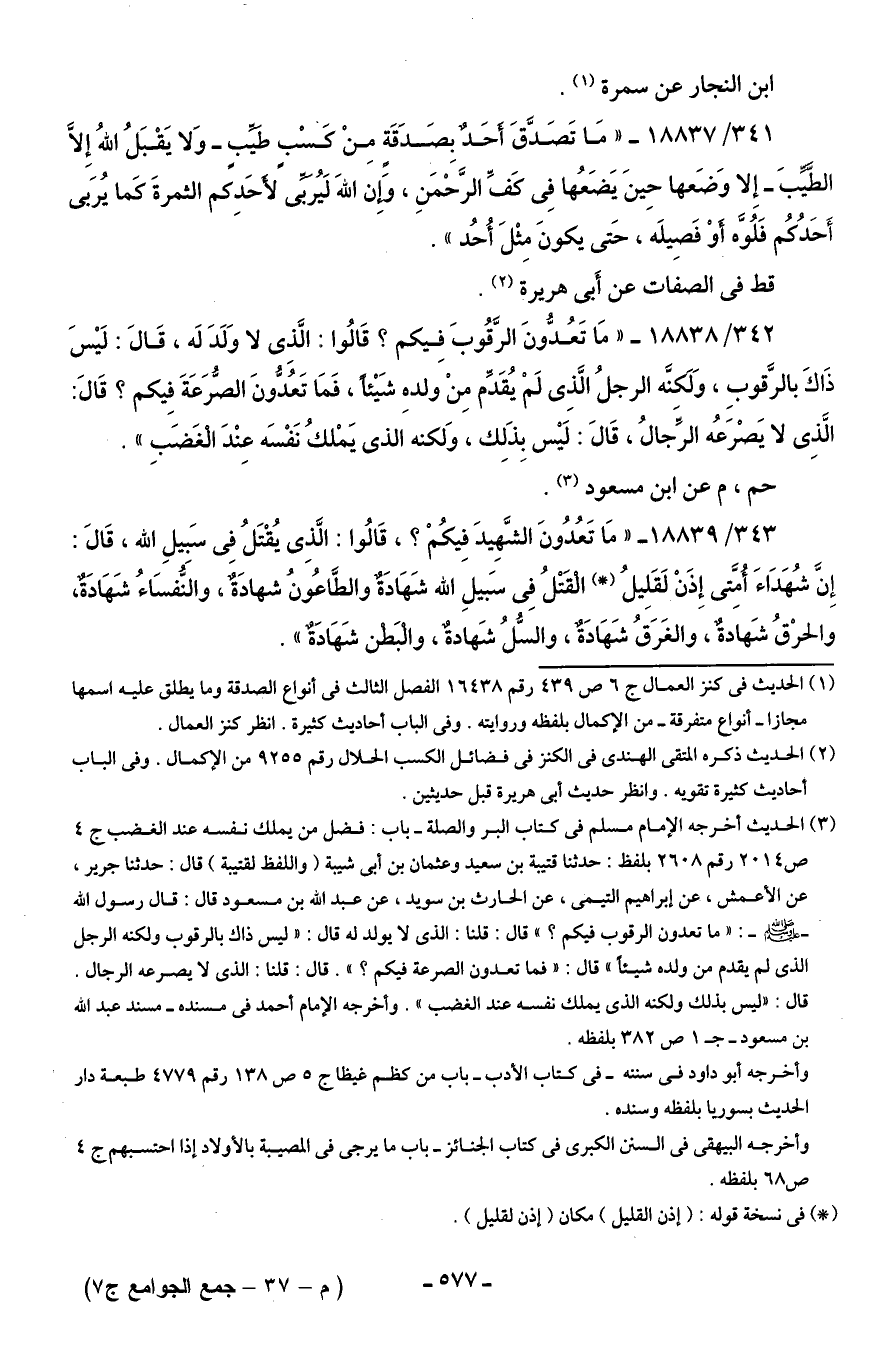 ابن النجار عن سمرة (١) .
٣٤١/ ١٨٨٣٧ ـ « مَا تَصَدَّقَ أَحَدٌ بِصَدَقَةٍ مِنْ كَسْبٍ طَيِّبٍ ـ وَلَا يَقْبَلُ اللهُ إِلاَّ
الطَّيِّبَ ـ إِلا وَضَعها حينَ يَضَعُها فِى كَفِّ الرَّحْمَنِ ، وَإِن اللهَ لَيُرَبِّى لأَحَدِكم الثمرةَ كَما يُرَبِى
أَحَدُكُم فَلُوَّه أَوْ فَصِيلَه ، حَتى يكونَ مِثْلَ أُحُد » .
قط فى الصفات عن أَبى هريرة (٢) .
٣٤٢/ ١٨٨٣٨ ـ « مَا تَعُدُّونَ الرَّقُوبَ فيكم ؟ قَالُوا : الَّذِى لا ولَدَ لَه ، قَالَ : لَيْسَ
ذَاكَ بالرَّقوبِ ، وَلَكنَّه الرجلُ الَّذى لَمْ يُقَدِّم مِنْ ولده شَيْئاً ، فَمَا تَعُدُّونَ الصُّرَعَةَ فيكم ؟ قَالَ:
الَّذى لا يَصْرَعُه الرِّجالُ ، قَالَ : لَيْس بذَلكِ ، ولَكنه الذى يَمْلكُ نَفْسَه عِنْدَ الْغَضَبِ » .
حم ، م عن ابن مسعود (٣) .
٣٤٣/ ١٨٨٣٩ـ « مَا تَعُدُونَ الشهَّيِدَ فيكُمْ ؟ ، قَالُوا : الَّذِى يُقْتَلُ فِى سَبِيلِ الله ، قَالَ :
إِنَّ شُهَدَاءَ أُمَّتى إِذَنْ لَقَلِيلُ (*) الْقَتْلُ فِى سَبيلِ الله شَهَادَةٌ والطَّاعُونُ شهادَةٌ ، والنُّفسَاءُ شَهَادَةٌ،
والحَرْقُ شَهَادةٌ ، والغَرَقُ شَهَادَةٌ ، والسِّلُّ شَهَادةٌ ، والْبَطْن شَهَادَةٌ » .
(١) الحديث فى كنز العمال ج ٦ ص ٤٣٩ رقم ١٦٤٣٨ الفصل الثالث فى أنواع الصدقة وما يطلق عليه اسمها
مجازا ـ أنواع متفرقة ـ من الإكمال بلفظه وروايته . وفى الباب أحاديث كثيرة . انظر كنز العمال .
(٢) الحديث ذكره المتقى الهندى فى الكنز فى فضائل الكسب الحلال رقم ٩٢٥٥ من الإكمال . وفى الباب
أحاديث كثيرة تقويه . وانظر حديث أبى هريرة قبل حديثين .
(٣) الحديث أخرجه الإمام مسلم فى كتاب البر والصلة ـ باب : فضل من يملك نفسه عند الغضب ج ٤
ص٢٠١٤ رقم ٢٦٠٨ بلفظ : حدثنا قتيبة بن سعيد وعثمان بن أبى شيبة ( واللفظ لقتيبة ) قال : حدثنا جرير ،
عن الأعمش ، عن إبراهيم التيمى ، عن الحارث بن سويد ، عن عبد الله بن مسعود قال : قال رسول الله
ـ ﷺ ـ : « ما تعدون الرقوب فيكم ؟ » قال : قلنا : الذى لا يولد له قال : « ليس ذاك بالرقوب ولكنه الرجل
الذى لم يقدم من ولده شيئاً » قال : « فما تعدون الصرعة فيكم ؟ » . قال : قلنا : الذى لا يصرعه الرجال .
قال : «ليس بذلك ولكنه الذى يملك نفسه عند الغضب » . وأخرجه الإمام أحمد فى مسنده ـ مسند عبد الله
بن مسعود ـ جـ ١ ص ٣٨٢ بلفظه .
وأخرجه أبو داود فى سننه ـ فى كتاب الأدب ـ باب من كظم غيظا ج ٥ ص ١٣٨ رقم ٤٧٧٩ طبعة دار
الحديث بسوريا بلفظه وسنده .
وأخرجه البيهقى فى السنن الكبرى فى كتاب الجنائز ـ باب ما يرجى فى المصيبة بالأولاد إذا احتسبهم ج ٤
ص٦٨ بلفظه .
(*) فى نسخة قوله : ( إذن القليل ) مكان ( إذن لقليل ) .
ـ ٥٧٧ ـ
( م – ٣٧ – جمع الجوامع ج٧)